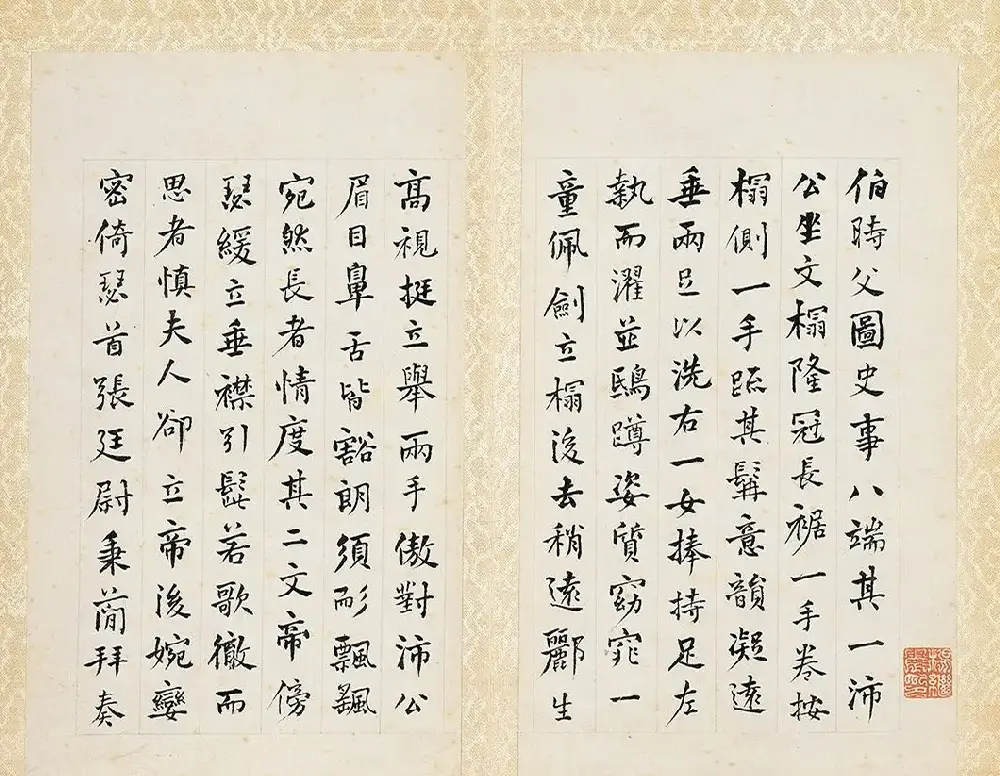 伯時父圖史事八端其一沛
公坐文榻隆冠長裾一手卷按
榻側一手跖其髯意韻凝遠
垂兩足以洗右一女捧持足左
執而濯並鴟蹲姿質窈窕一
童佩劍立榻後去稍遠酈生
高視挺立舉兩手傲對沛公
眉目鼻舌皆豁朗須而彡飄飄
宛然長者情度其二文帝傍
瑟緩立垂襟引髭若歌徹而
思者慎夫人卻立帝後婉孌
密倚瑟首張廷尉秉蕳拜奏